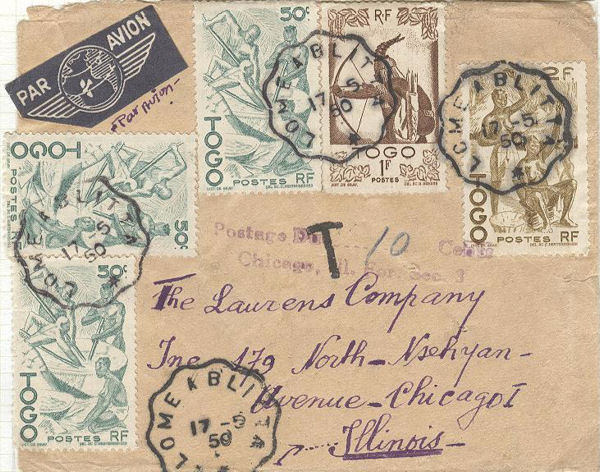 PAR AVION
Par avion
50c
TOGO
POSTES RF
RF
TOGO
1F POSTES
2F
TOGO
POSTES RF
LOME A BLITTA
17-5
50
LOME A BLITTA
17-5
50
TOGO
POSTES RF
50c
LOME A BLITTA
17-5
50
T
Postage Due 10 Cents
Chicago, Ill. For. Sec. 3
50c
TOGO
POSTES RF
The Laurens Company
Inc 179 North-
Avenue-Chicago I
Illinois-
LOME A BLITTA
17-5
50